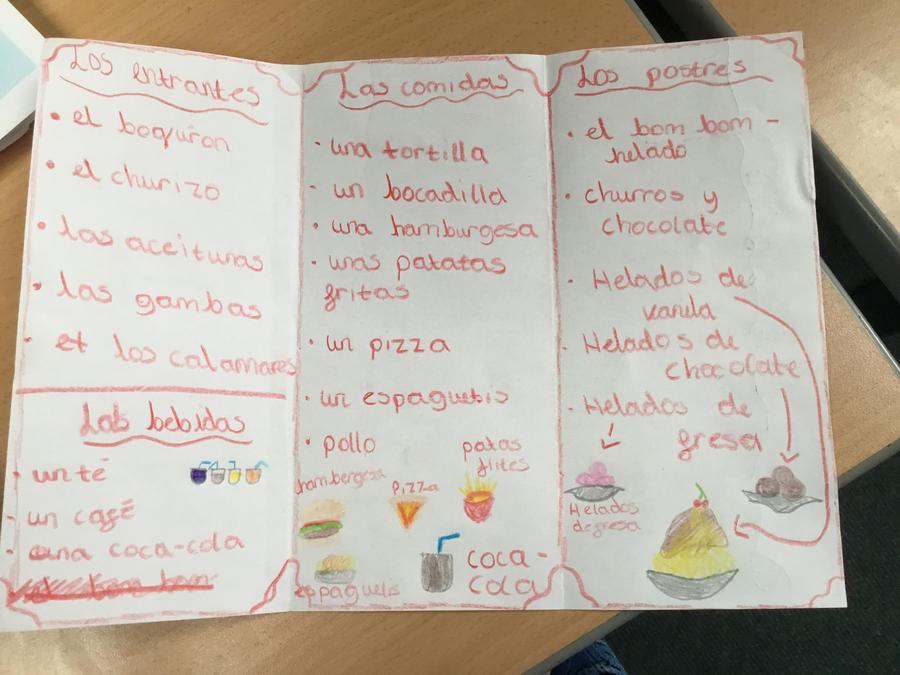 Los entrantes
• el boquron
• el churizo
• las aceitunas
• las gambas
• et los calamares
Las bebidas
• un té
• un cagé
• una coca-cola
Las comidas
• una tortilla
• un bocadilla
• una hamburgesa
• unas patatas
gritas
• un pizza
• un espaguetis
• pollo
hambergesa
pizza
patas
frites
espaguetis
coca-
cola
Los postres
• el bom bom -
helado
• churros y
chocolate
• Helados de
vanila
• Helados de
chocolate
• Helados de
gresa
Helados
degresa